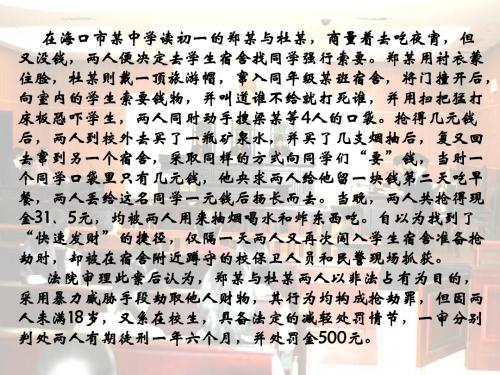 在海口市某中学读初一的郑某与杜某，商量着去吃夜宵，但
又没钱，两人便决定去学生宿舍找同学强行索要。郑某用衬衣蒙
住脸，杜某则戴一顶旅游帽，窜入同年级某班宿舍，将门撞开后，
向室内的学生索要钱物，并叫道谁不给就打死谁，并用扫把猛打
床板恐吓学生，两人同时动手搜梁某等4人的口袋。抢得几元钱
后，两人到校外去买了一瓶矿泉水，并买了几支烟抽后，复又回
去窜到另一个宿舍，采取同样的方式向同学们“要”钱，当时一
个同学口袋里只有几元钱，他央求两人给他留一块钱第二天吃早
餐，两人丢给这名同学一元钱后扬长而去。当晚，两人共抢得现
金31．5元，均被两人用来抽烟喝水和炸东西吃。自以为找到了
“快速发财”的捷径，仅隔一天两人又再次闯入学生宿舍准备抢
劫时，却被在宿舍附近蹲守的校保卫人员和民警现场抓获。
法院审理此案后认为，郑某与杜某两人以非法占有为目的，
采用暴力威胁手段劫取他人财物，其行为均构成抢劫罪，但因两
人未满18岁，又系在校生，具备法定的减轻处罚情节，一审分别
判处两人有期徒刑一年六个月，并处罚金500元。